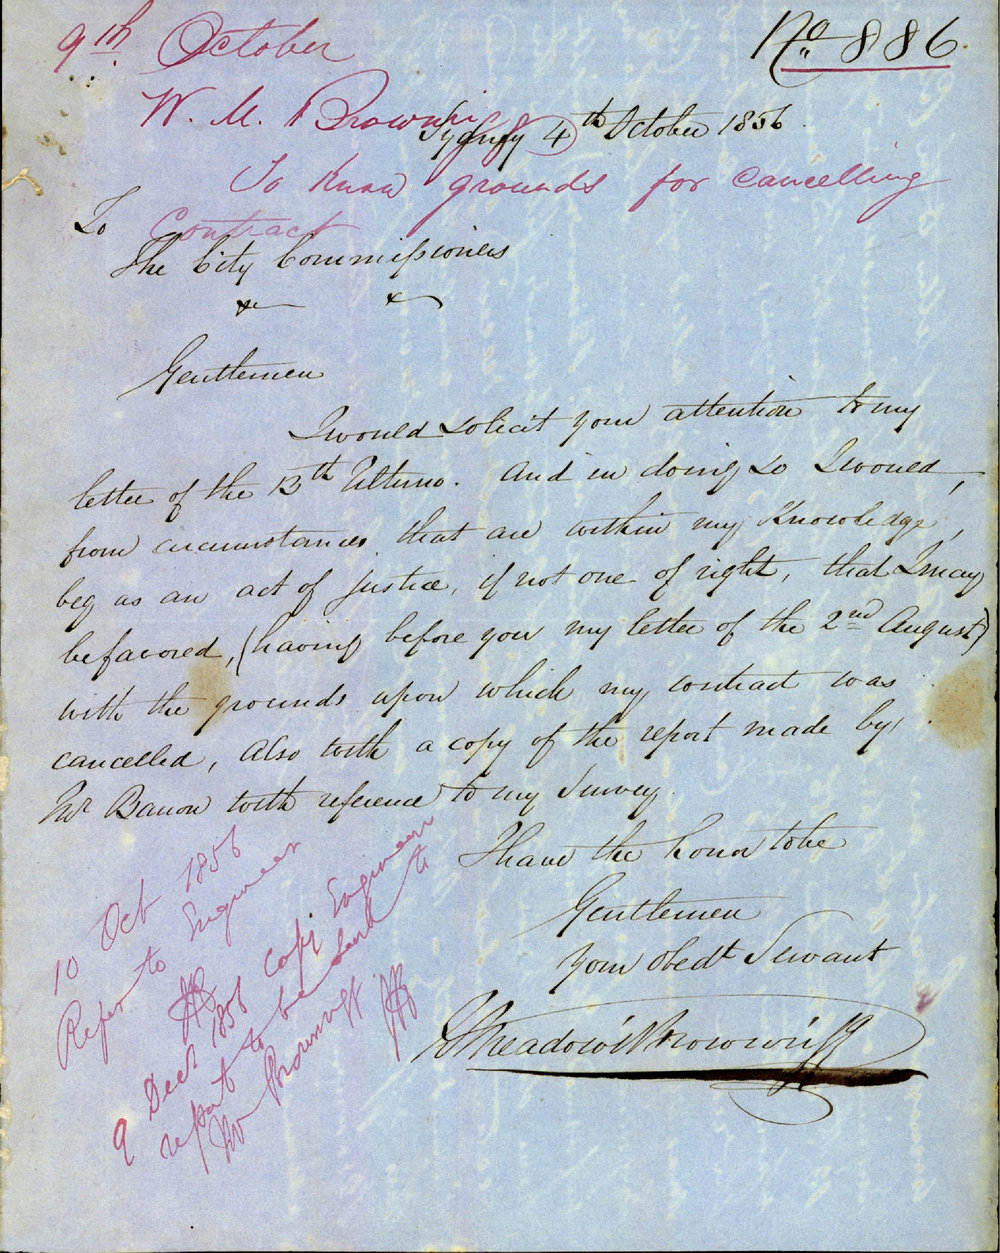 9th October
No 886.
W. M. Brownrigg
Sydney 4th October 1856
To know grounds for cancelling
Contract
To
The City Commissioners
Gentlemen
I would solicit your attention to my
letter of the 13th Ultimo. And in doing so I would,
from circumstances that are within my Knowledge,
beg as an act of justice, if not one of right, that I may
be favored, (having before you my letter of the 2nd August)
with the grounds upon which my contract was
cancelled, also with a copy of the report made by
Mr Barron with reference to my Survey.
I have the honor to be
Gentlemen
Your obedt Servant
Meadows Brownrigg
10 Oct 1856
Refer to Engineer
9 Decr 1856 Copy Engineers
report to be sent to
Mr Brownrigg